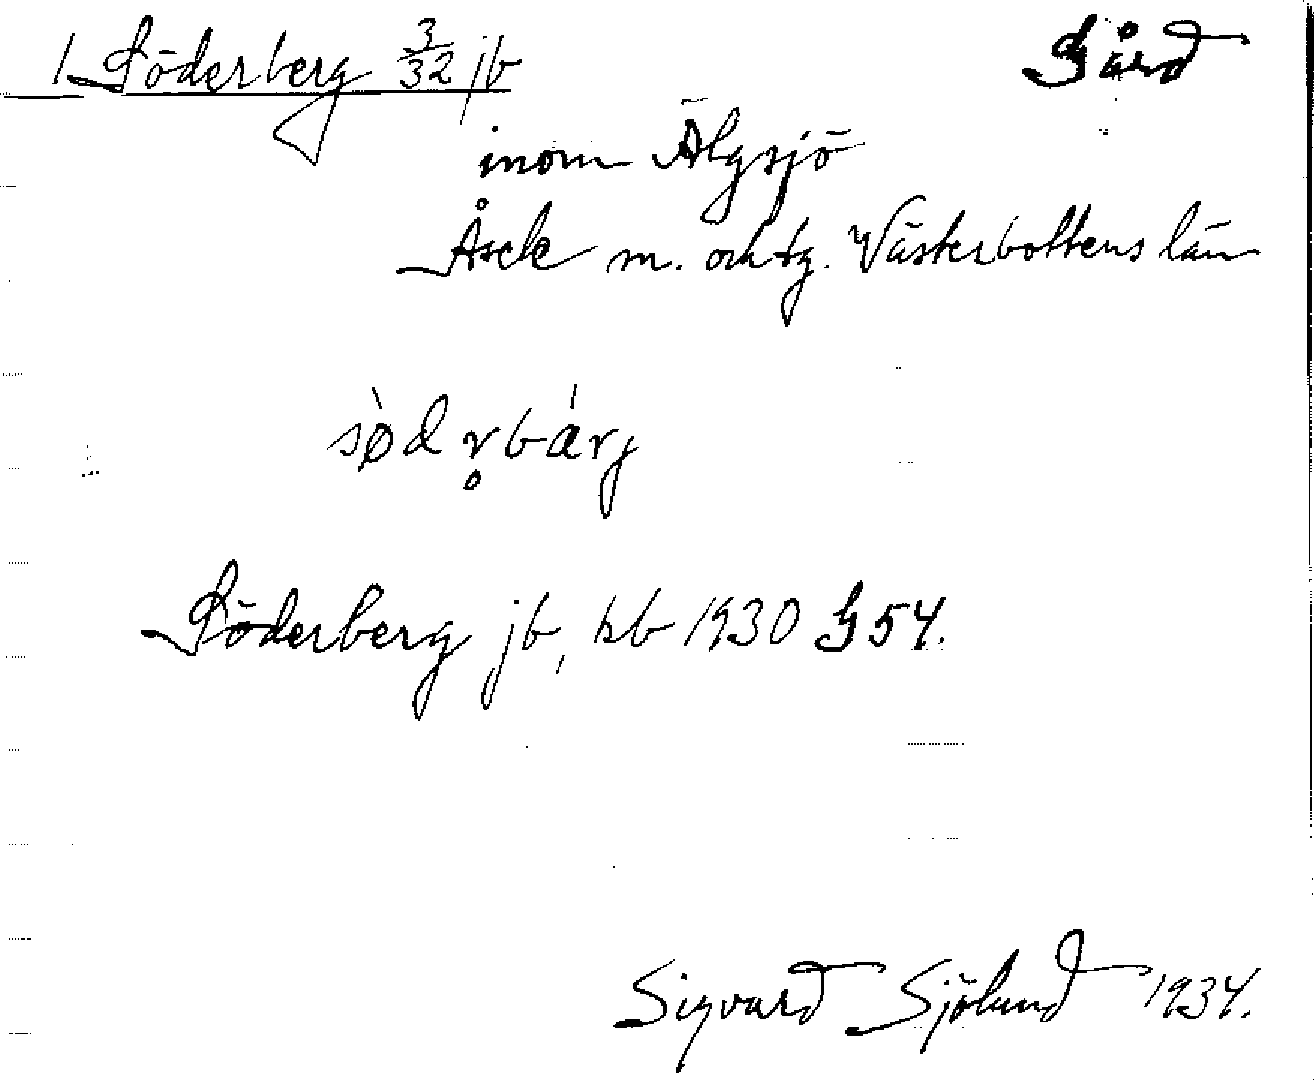 1 Söderberg 3/32 jb Gård
inom Älgsjö
Åsele sn. och tg. Västerbottens län
sø̀dr̥bárj
Söderberg jb, kb 1930 G 54.
Sigvard Sjölund 1934.